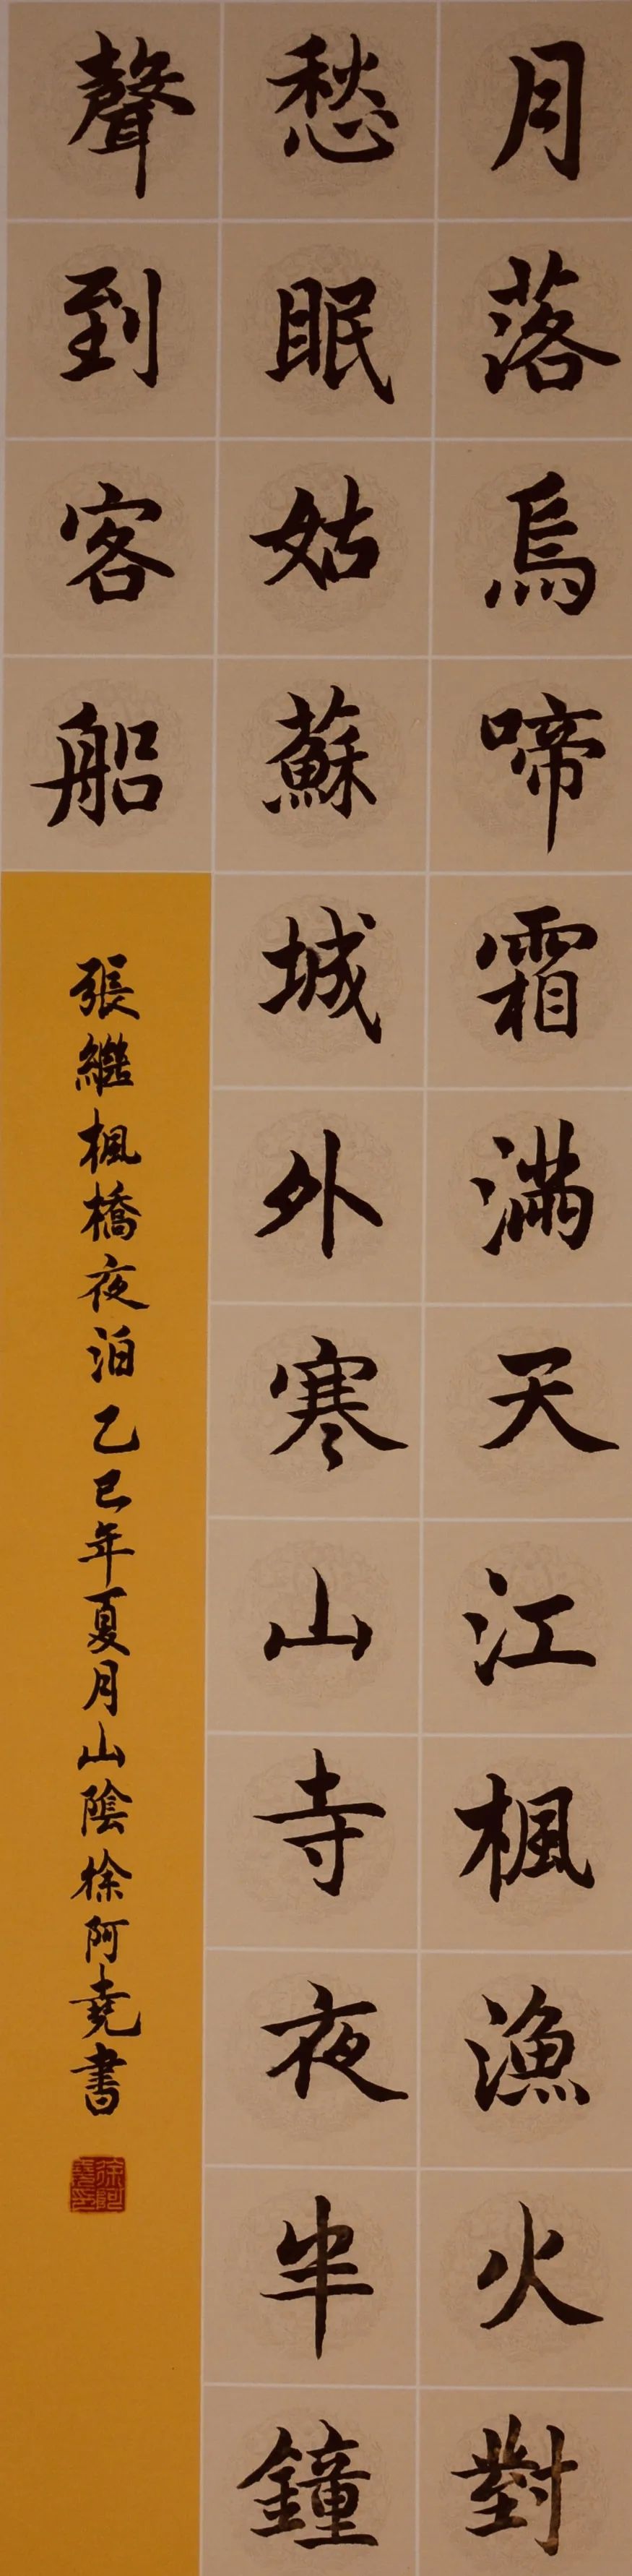 月落烏啼霜滿天江楓漁火對
愁眠姑蘇城外寒山寺夜半鐘
聲到客船
張繼楓橋夜泊乙巳年夏月山陰徐阿堯書